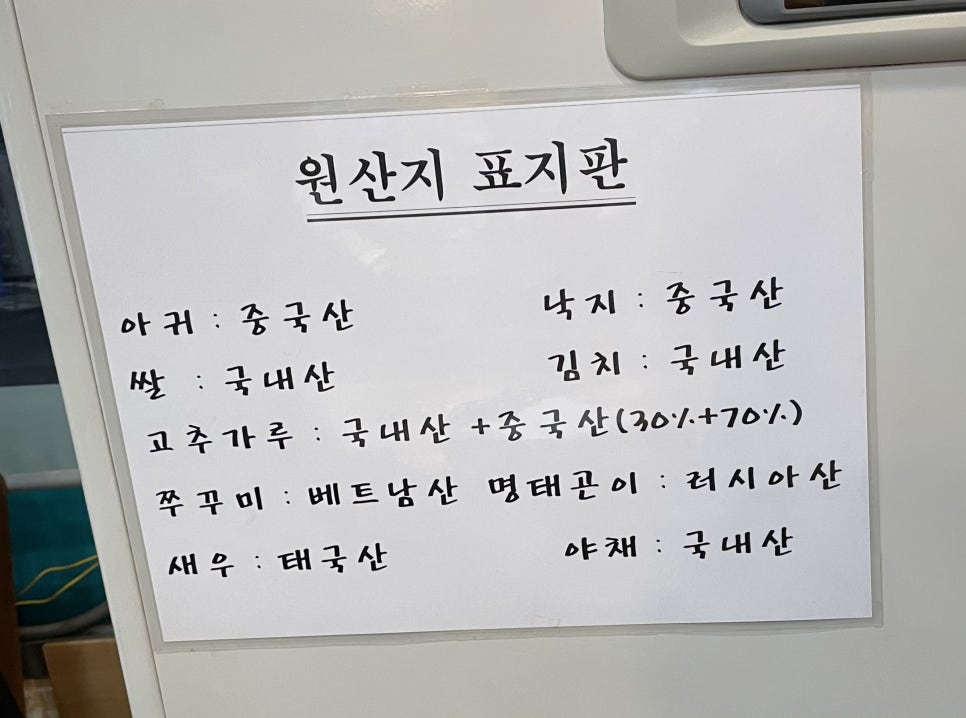 원산지 표지판
아귀 : 중국산 낙지 : 중국산
쌀 : 국내산 김치 : 국내산
고추가루 : 국내산 +중국산(30%+70%)
쭈꾸미 : 베트남산 명태곤이 : 러시아산
새우 : 태국산 야채 : 국내산